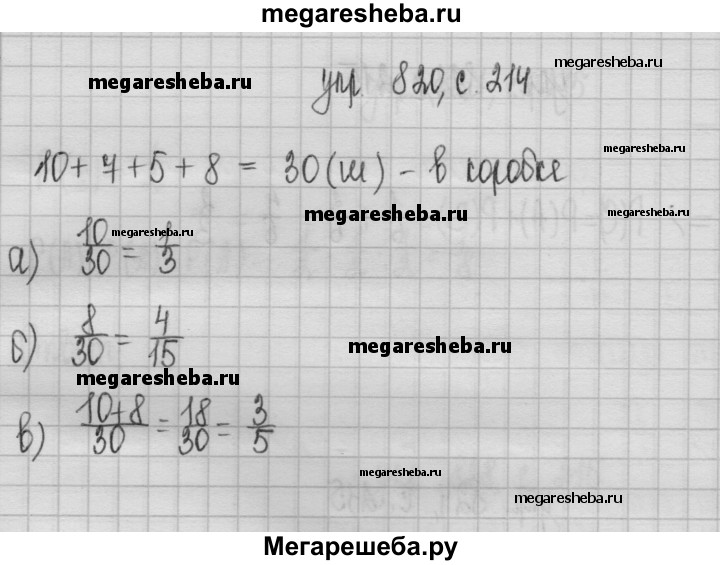 megaresheba.ru
megaresheba.ru
megaresheba.ru
упр. 820, с. 214
10 + 7 + 5 + 8 = 30 (ш) - в коробке
megaresheba.ru
megaresheba.ru
megaresheba.ru
а) 10/30 = 1/3
б) 8/30 = 4/15
megaresheba.ru
megaresheba.ru
в) 10+8/30 = 18/30 = 3/5
megaresheba.ru
megaresheba.ru
megaresheba.ru
Мегарешеба.ру